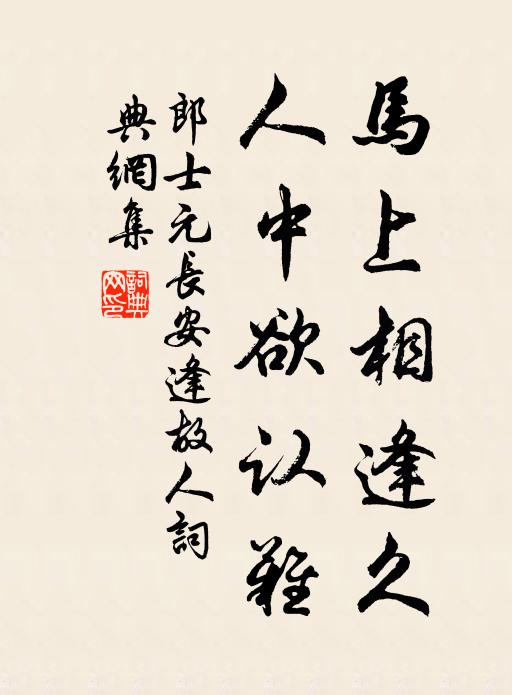 馬上相逢久
人中欲认難
郎士元長安逢故人詞
典網集
詞典網印